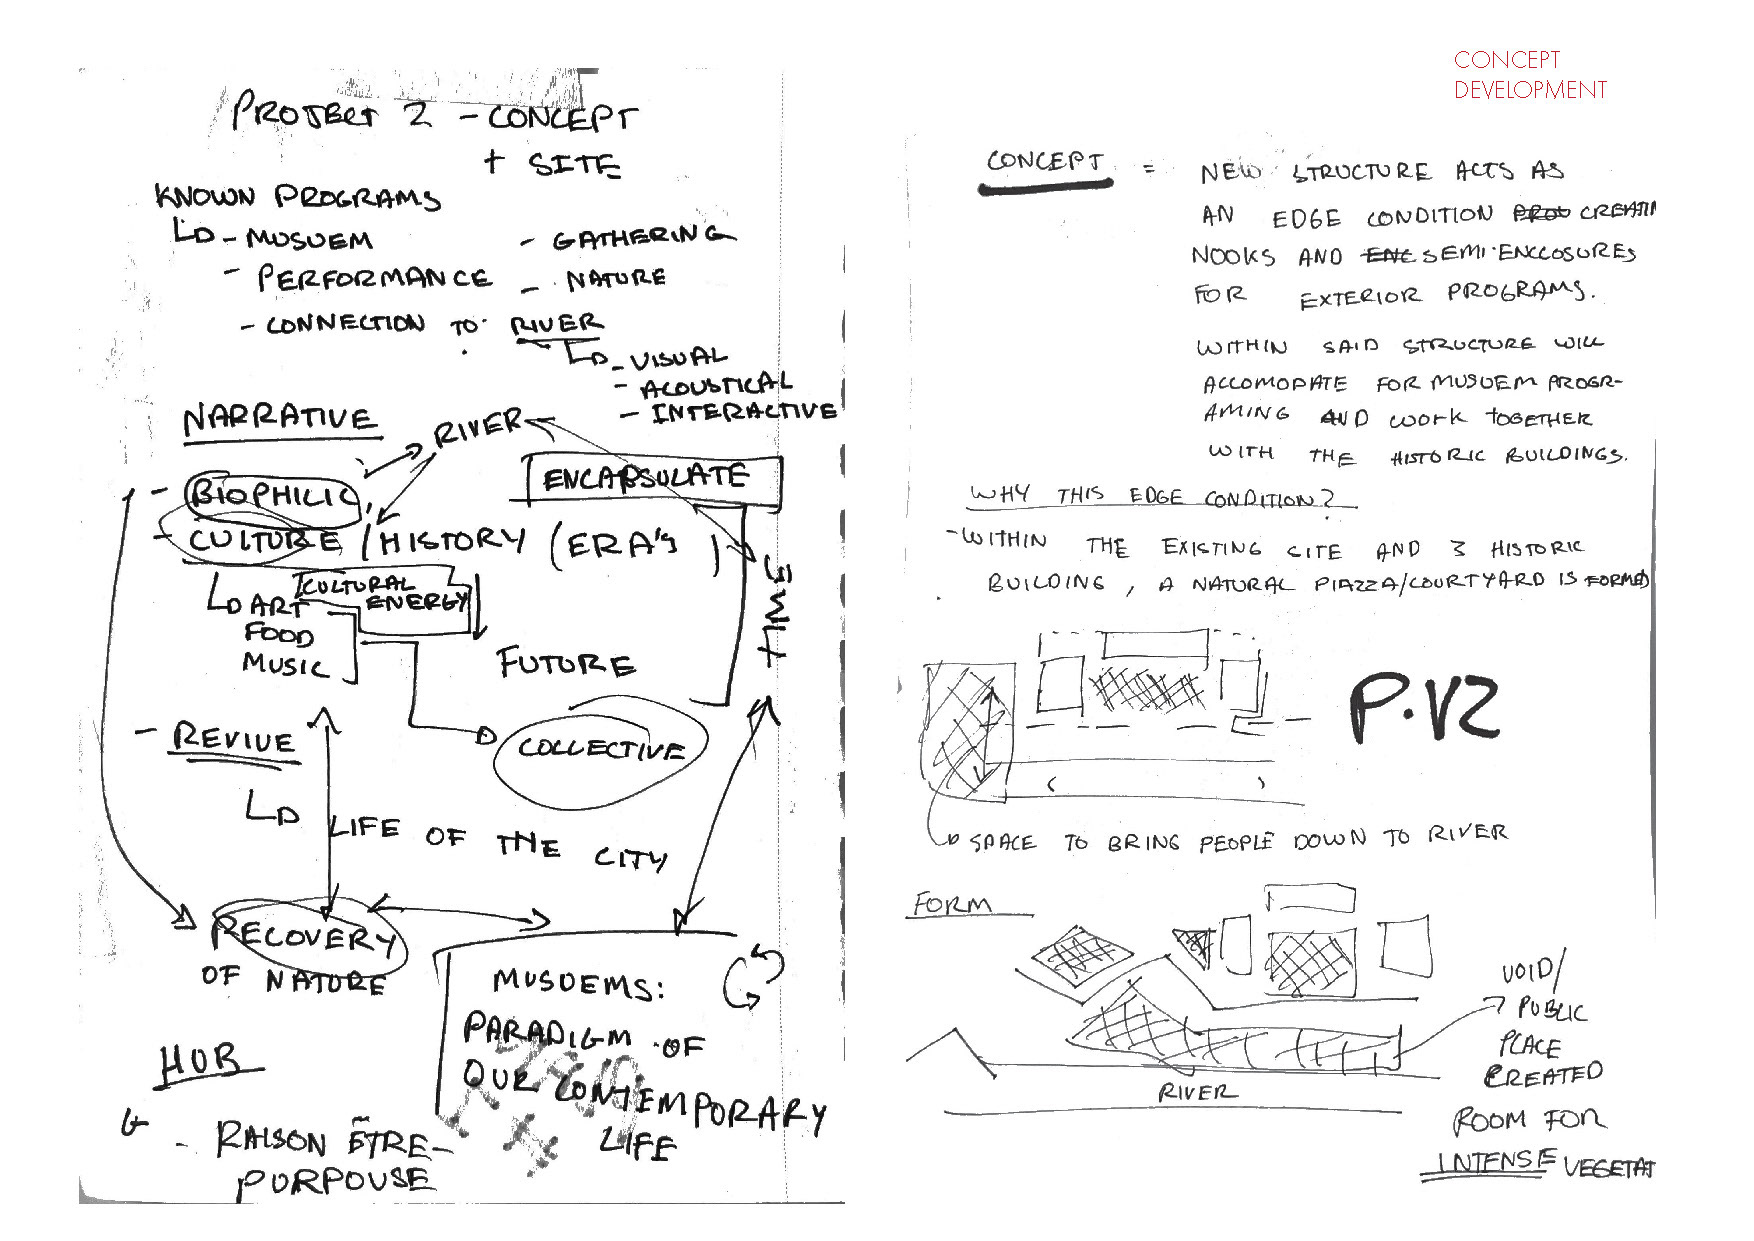 CONCEPT
DEVELOPMENT
PROJECT 2 - CONCEPT
+ SITE
KNOWN PROGRAMS
- MUSUEM
- GATHERING
- PERFORMANCE
- NATURE
- CONNECTION TO RIVER
- VISUAL
- ACOUSTICAL
- INTERACTIVE
NARRATIVE
RIVER
ENCAPSULATE
- BIOPHILIC,
- CULTURE / HISTORY (ERA'S)
TIME
CULTURAL
ENERGY
ART
FOOD
MUSIC
FUTURE
- REVIVE
COLLECTIVE
LIFE OF THE CITY
RECOVERY
OF NATURE
MUSUEMS:
PARADIGM OF
OUR CONTEMPORARY
LIFE
HUB
- RAISON ÊTRE -
PURPOUSE
CONCEPT = NEW STRUCTURE ACTS AS
AN EDGE CONDITION CREATIN
NOOKS AND ENC SEMI-ENCLOSURES
FOR EXTERIOR PROGRAMS.
WITHIN SAID STRUCTURE WILL
ACCOMODATE FOR MUSUEM PROGR-
AMING AND WORK TOGETHER
WITH THE HISTORIC BUILDINGS.
WHY THIS EDGE CONDITION?
- WITHIN THE EXISTING SITE AND 3 HISTORIC
BUILDING, A NATURAL PIAZZA/COURTYARD IS FORMED
P.V2
SPACE TO BRING PEOPLE DOWN TO RIVER
FORM
VOID/
PUBLIC
PLACE
CREATED
RIVER
ROOM FOR
INTENSE VEGETAT